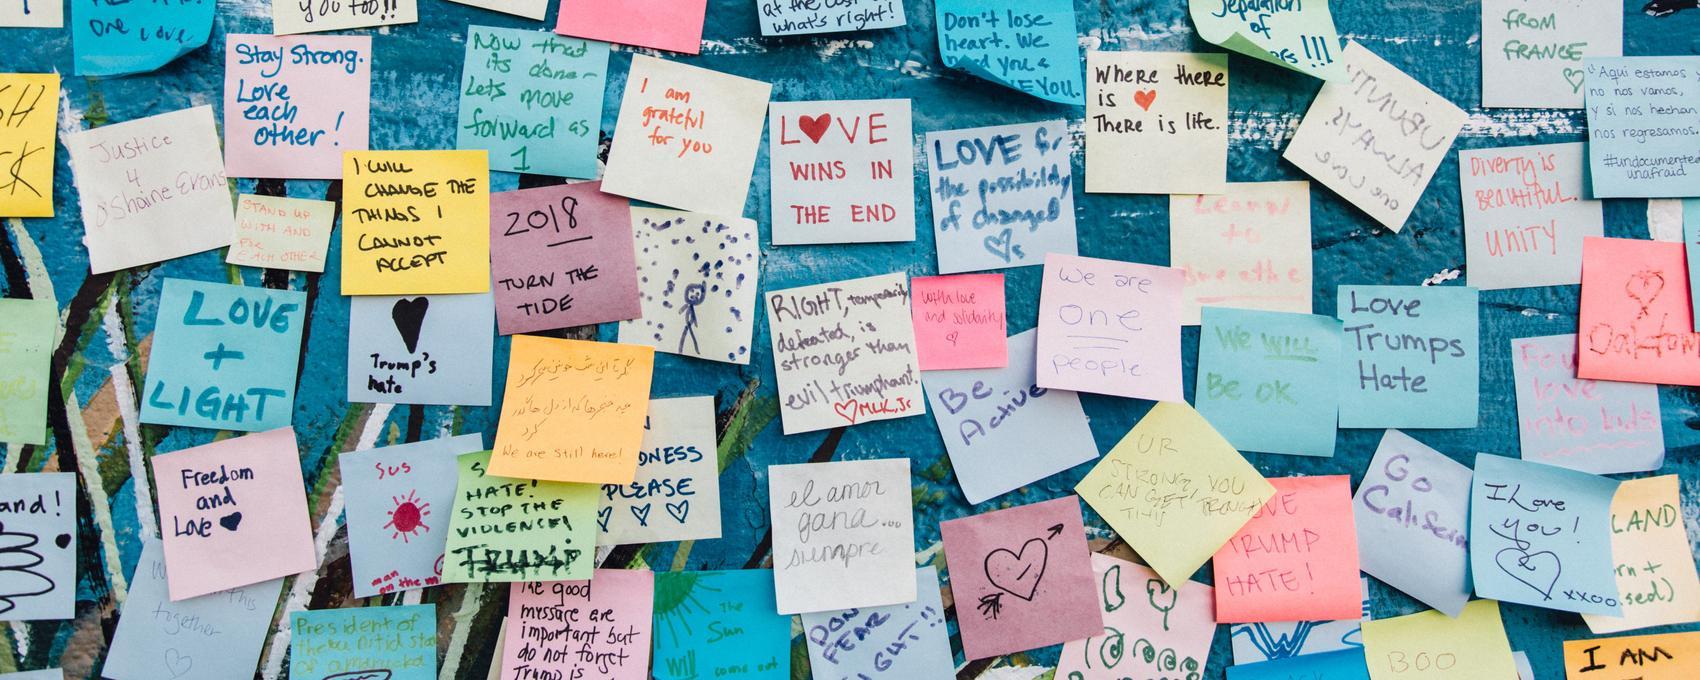 One Love.
YOU TOO!!
what's right!
Don't lose
heart. We
need you &
LOVE YOU.
Separation
of
FROM
FRANCE
Stay Strong.
Love
each
other!
Now that
its done-
Lets move
forward as
1
I am
grateful
for you
LOVE
WINS IN
THE END
LOVE for
the possibility
of changed
Where there
is
There is life.
UBUNTU
ALWAYS.
one love
"Aqui estamos y
no nos vamos,
y si nos hechan
nos regresamos.
#undocumented
unafraid
Diverty is
beautiful.
UNITY
Justice
4
O'Shaine Evans
STAND UP
WITH AND
FOR
EACH OTHER
I WILL
CHANGE THE
THINGS I
CANNOT
ACCEPT
2018
TURN THE
TIDE
Learn
to
LOVE
+
LIGHT
Trump's
hate
We are still here!
RIGHT, temporarily
defeated, is
stronger than
evil triumphant.
MLK, Jr
with love
and solidarity
We are
one
people
Be
Active
We will
Be ok
Love
Trumps
Hate
Oaktown
Pour
love
into kids
Freedom
and
Love
SUS
man
on the
HATE!
STOP THE
VIOLENCE!
Trump
PLEASE
el amor
gana...
siempre
UR
STRONG, YOU
CAN GET THROUGH
THIS
LOVE
TRUMP
HATE!
Go
California
I Love
you!
xxoo
LAND
and!
together
President of
The good
message are
important but
do not forget
Trump is
The
Sun
Will come out
DON'T
FEAR
FIGHT!!
BOO
I AM